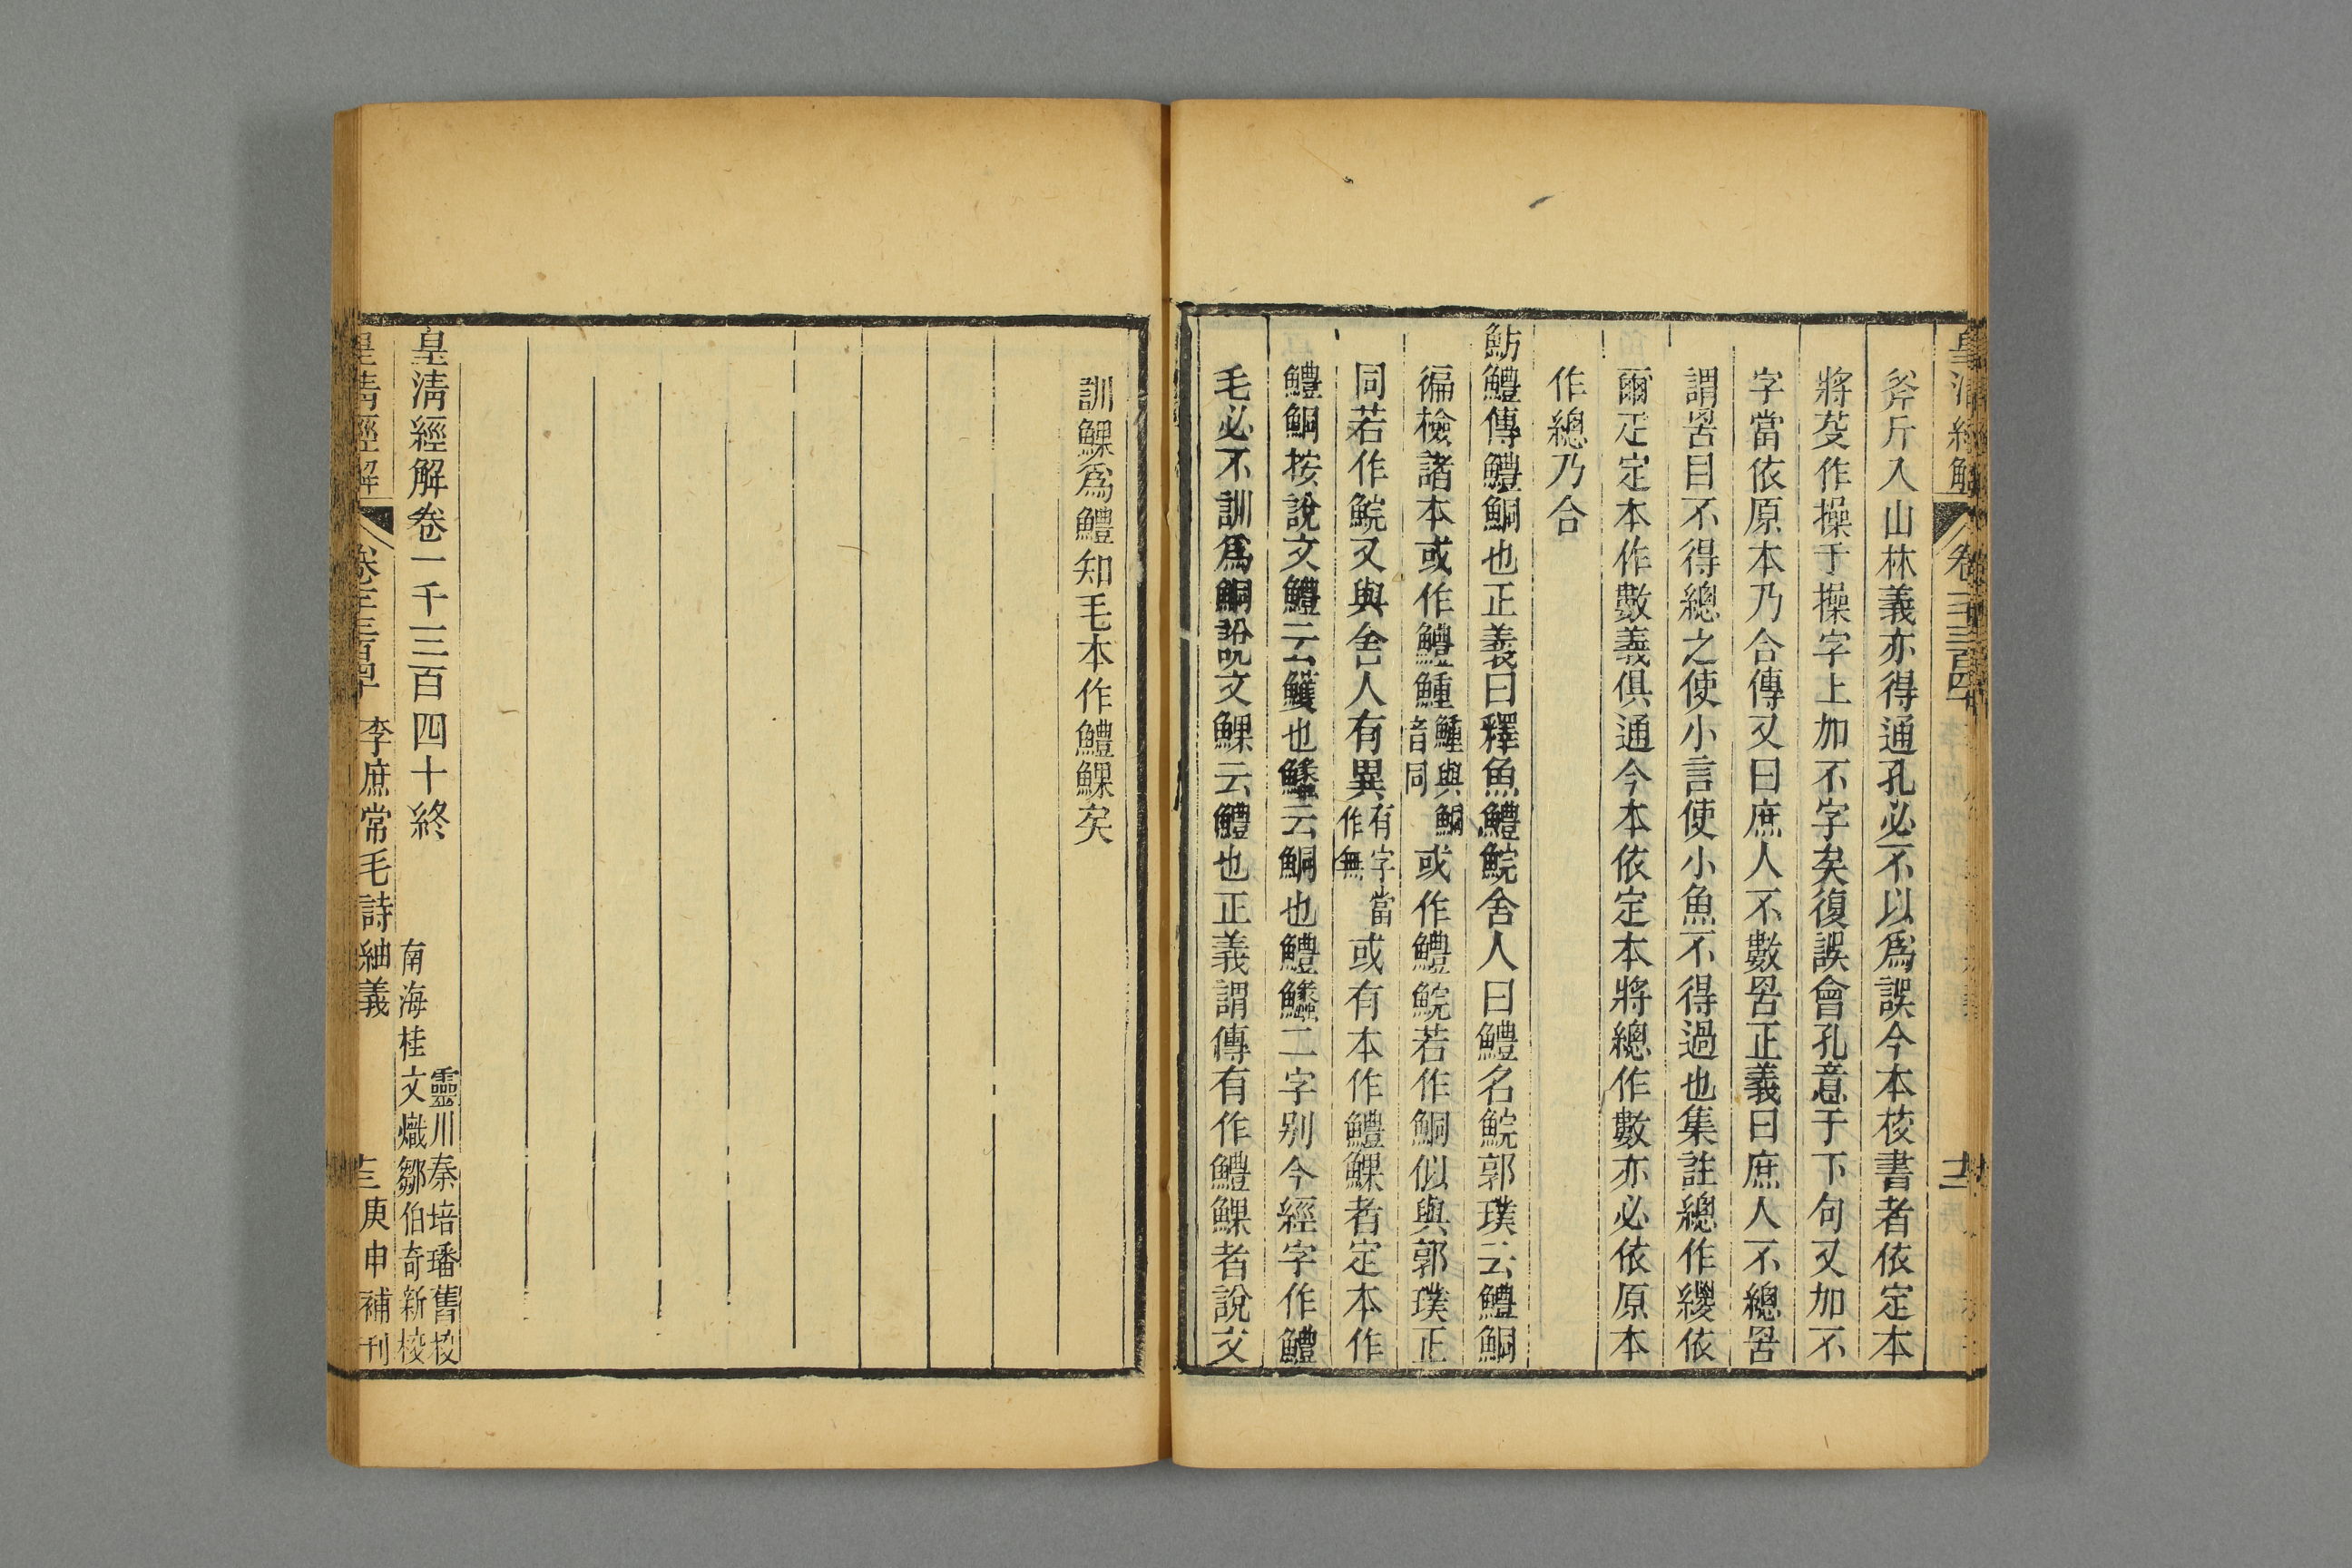 皇清經解
斧斤入山林義亦得通孔必不以爲誤今本校書者依定本
將芟作操于操字上加不字矣復誤會孔意于下句又加不
字當依原本乃合傳又曰庶人不數罟正義曰庶人不總罟
謂罟目不得總之使小言使小魚不得過也集註總作緵依
爾疋定本作數義俱通今本依定本將總作數亦必依原本
作總乃合
魴鱧傳鱧鮦也正義曰釋魚鱧鯇舍人曰鱧名鯇郭璞云鱧鮦
徧檢諸本或作鱧鯶鯶與鮦音同或作鱧鯇若作鮦似與郭璞正
同若作鯇又與舍人有異有字當作無或有本作鱧鰥者定本作
鱧鮦按說文鱧云鱯也鱶云鮦也鱧鱶二字别今經字作鱧
毛必不訓爲鮦說文鰥云鱧也正義謂傳有作鱧鰥者說文
訓鰥爲鱧知毛本作鱧鰥矣
皇清經解卷一千三百四十終
靈川秦培璠舊校
南海桂文熾鄒伯奇新校
皇清經解
李庶常毛詩紬義
庚申補刊